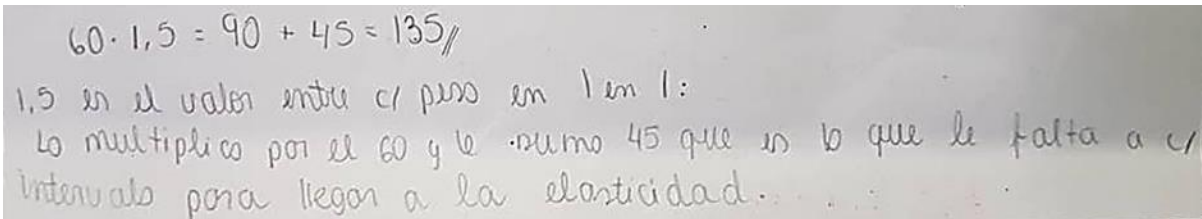 60 · 1,5 = 90 + 45 = 135//
1,5 es el valor entre c/ peso en 1 en 1:
Lo multiplico por el 60 y le sumo 45 que es lo que le falta a c/
intervalo para llegar a la elasticidad.